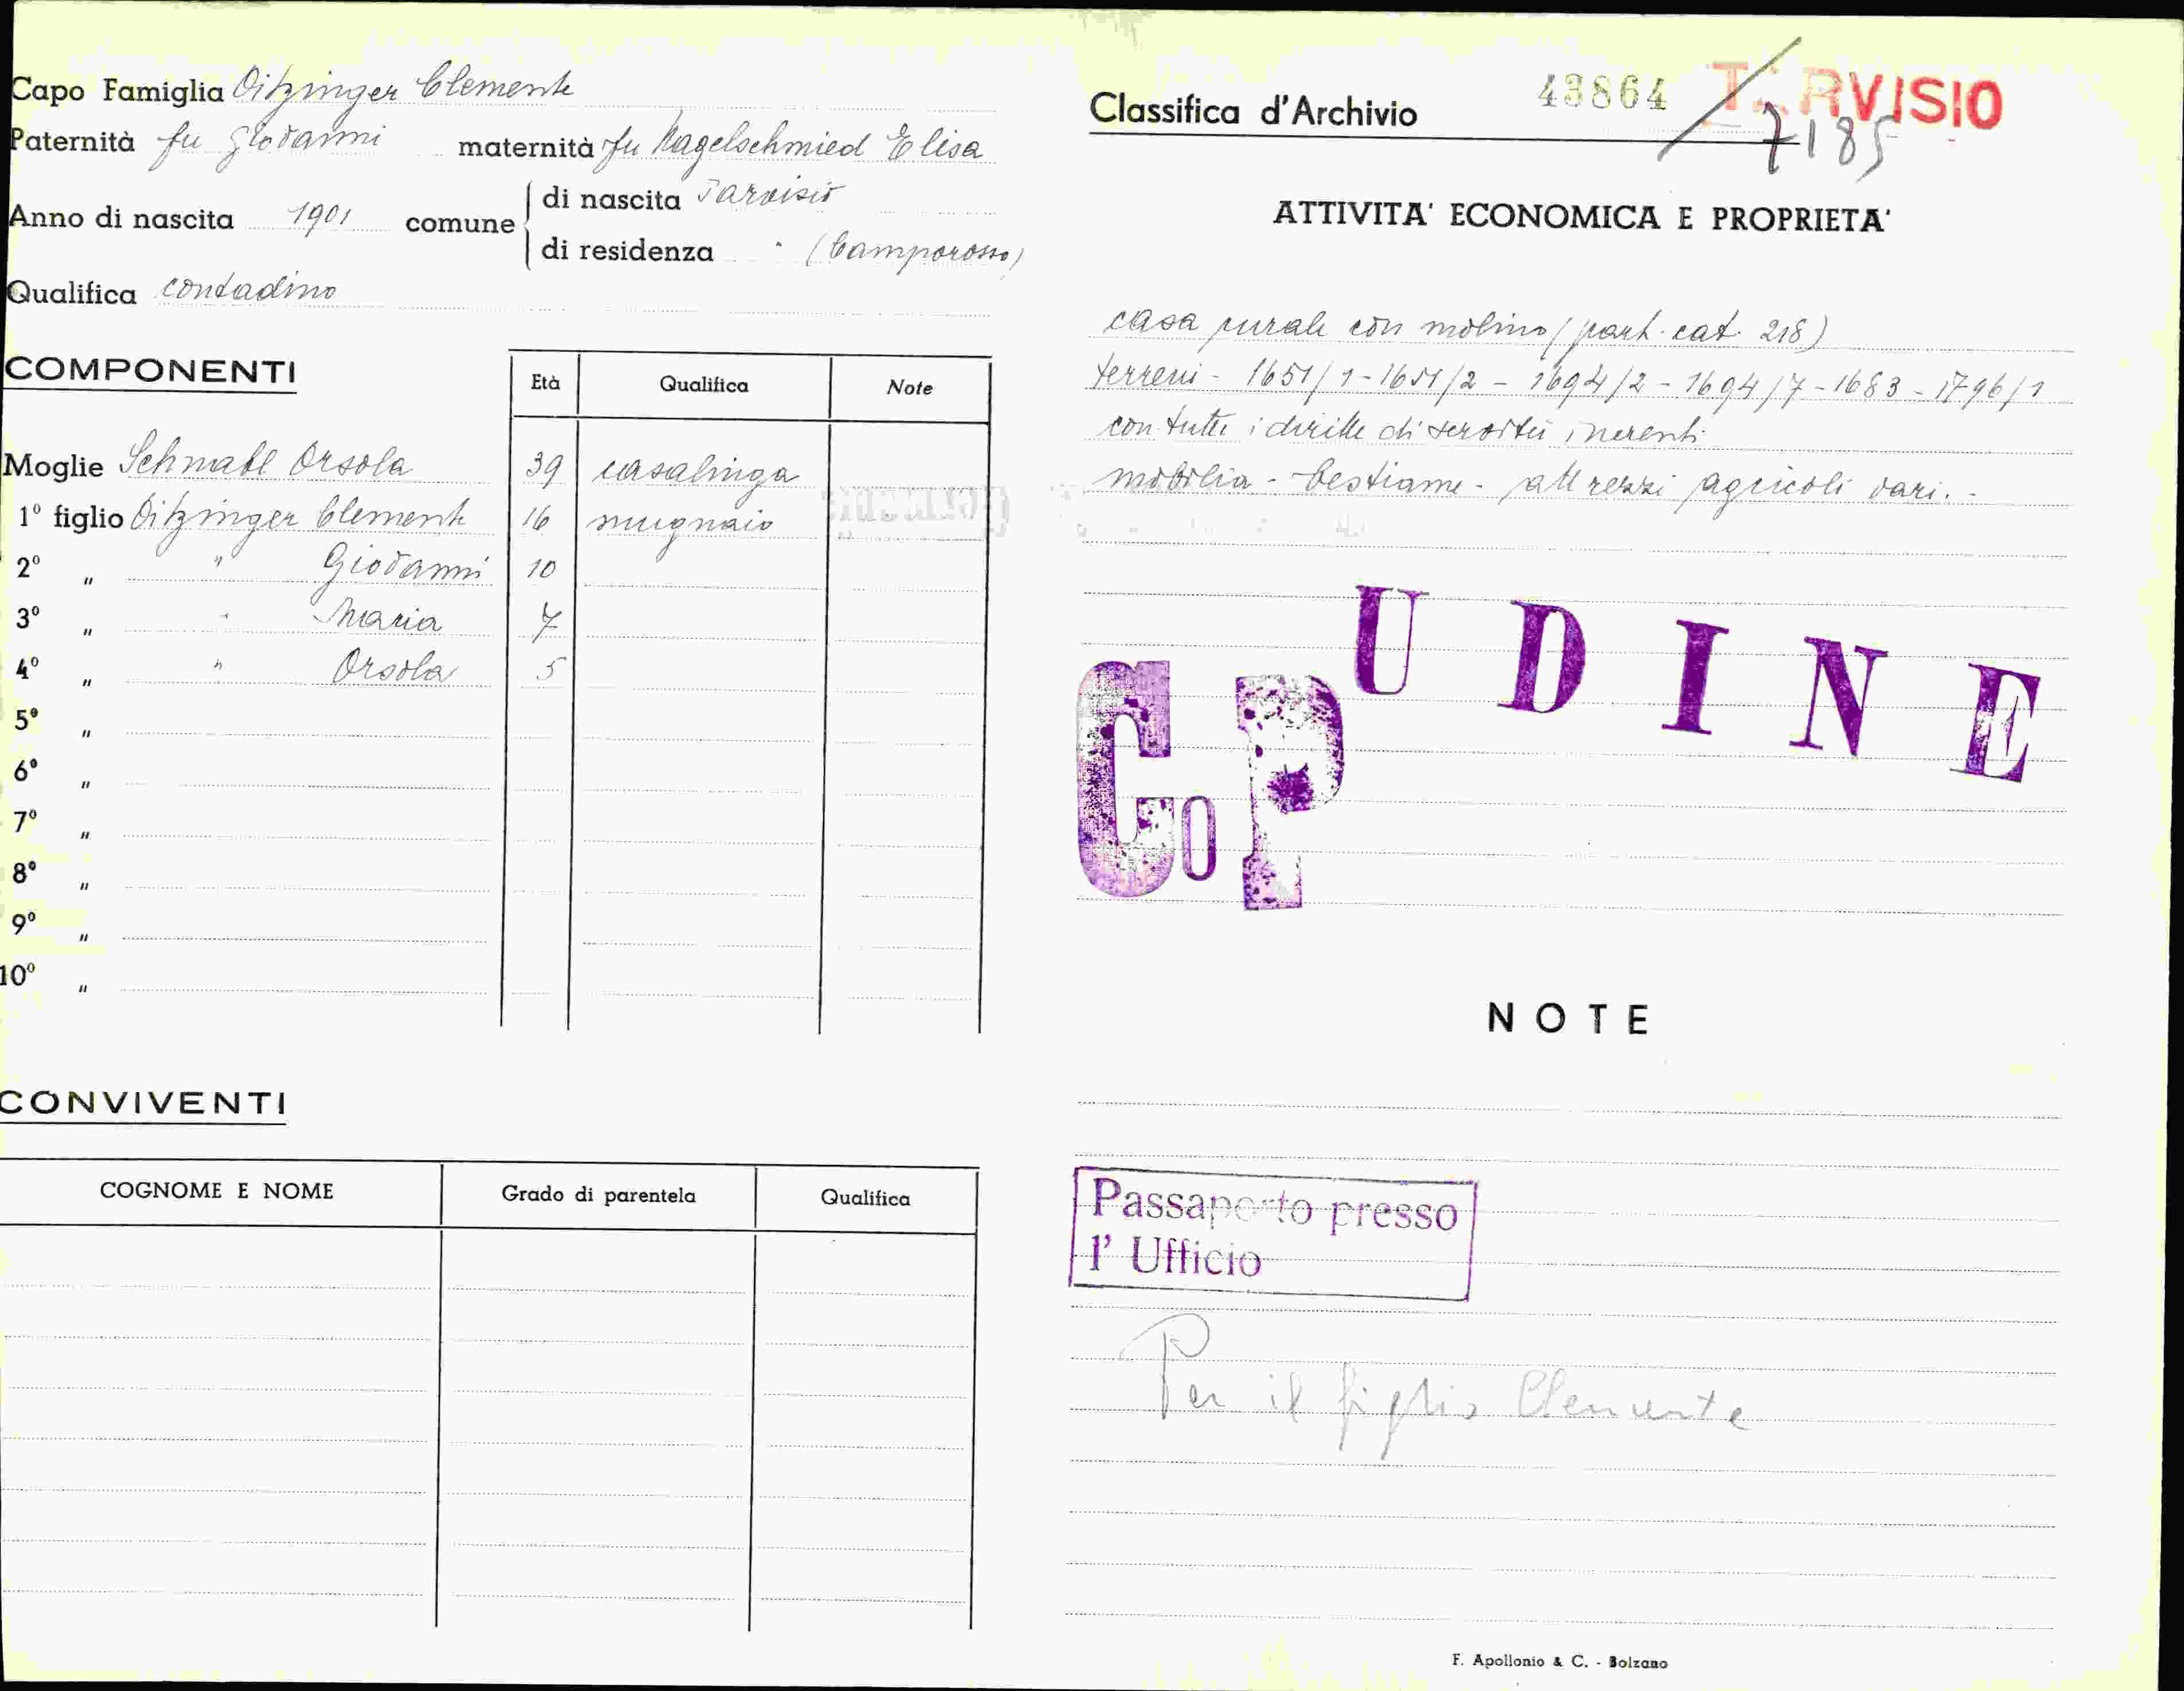 Capo Famiglia Oitzinger Clemente
Paternità fu Giovanni maternità fu Nagelschmied Elisa
Anno di nascita 1901 comune di nascita Tarvisio
di residenza " (Camporosso)
Qualifica contadino
COMPONENTI
Età Qualifica Note
Moglie Schnabl Orsola 39 casalinga
1º figlio Oitzinger Clemente 16 mugnaio
2º " " Giovanni 10
3º " " Maria 7
4º " " Orsola 5
5º "
6º "
7º "
8º "
9º "
10º "
CONVIVENTI
COGNOME E NOME Grado di parentela Qualifica
Classifica d'Archivio 43864 TARVISIO
7185
ATTIVITA' ECONOMICA E PROPRIETA'
casa rurale con molino (part. cat. 218)
terreni - 1651/1 - 1651/2 - 1694/2 - 1694/7 - 1683 - 1796/1
con tutti i diritti di servitù inerenti
mobilia - bestiame - attrezzi agricoli vari. -
UDINE
CoP
NOTE
Passaporto presso
l' Ufficio
Per il figlio Clemente
F. Apollonio & C. - Bolzano